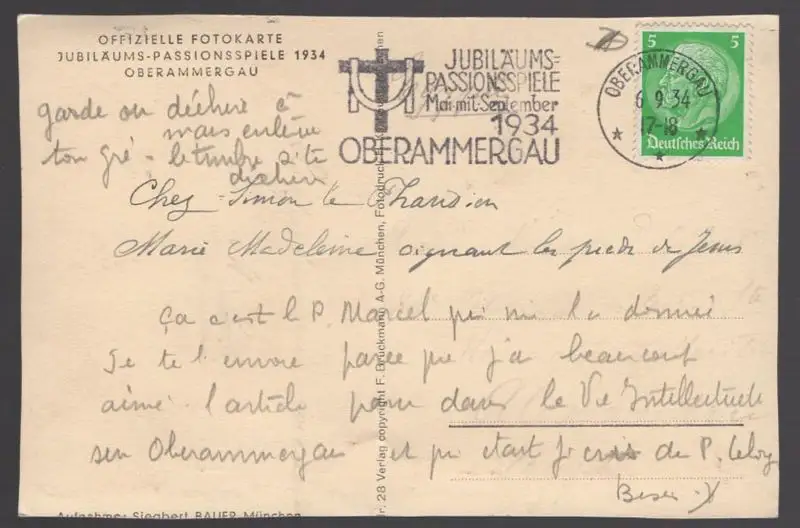 OFFIZIELLE FOTOKARTE
JUBILÄUMS-PASSIONSSPIELE 1934
OBERAMMERGAU
JUBILÄUMS=
PASSIONSSPIELE
Mai mit September
1934
OBERAMMERGAU
OBERAMMERGAU
6.9.34
17-18
5 5
Deutsches Reich
garde ou déchire à
mais enlève
ton gré - le timbre si tu
déchires
Chez Simon le
Marie Madeleine oignant les pieds de Jesus
Ça c'est le P. Marcel qui me l'a donnée
Je te l'envoie parce que j'ai beaucoup
aimé l'article paru dans la Vie Intellectuelle
sur Oberammergau et qui était je crois du P.
28 Verlag copyright F. Bruckmann A-G. München, Fotodruck
Aufnahme: Siegbert BAUER München